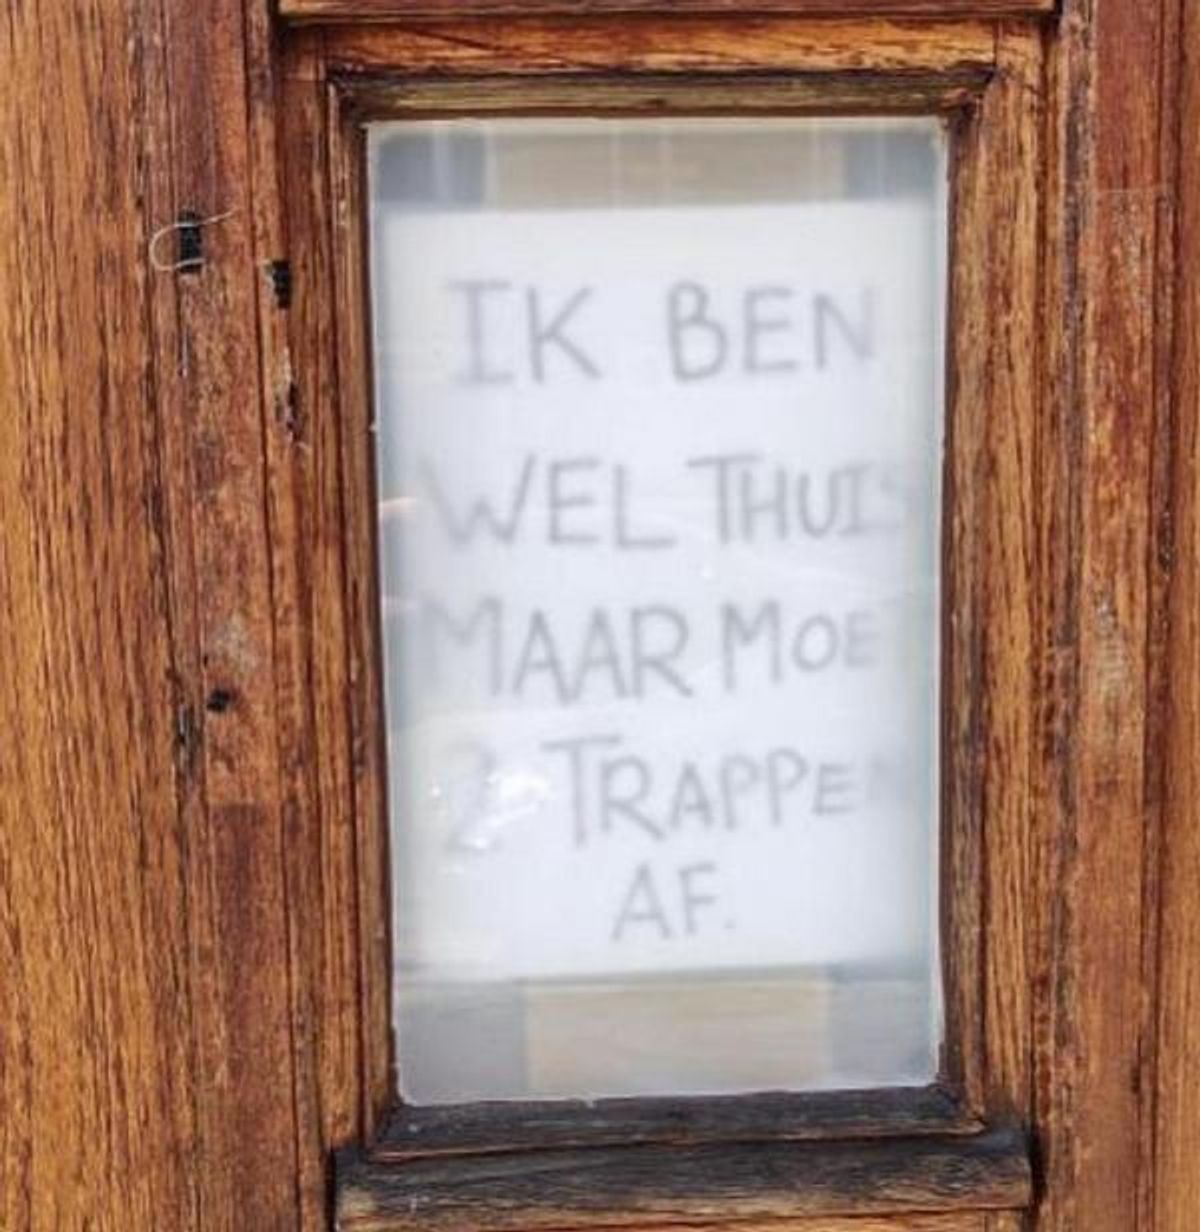 IK BEN
WEL THUIS
MAAR MOET
2 TRAPPEN
AF.